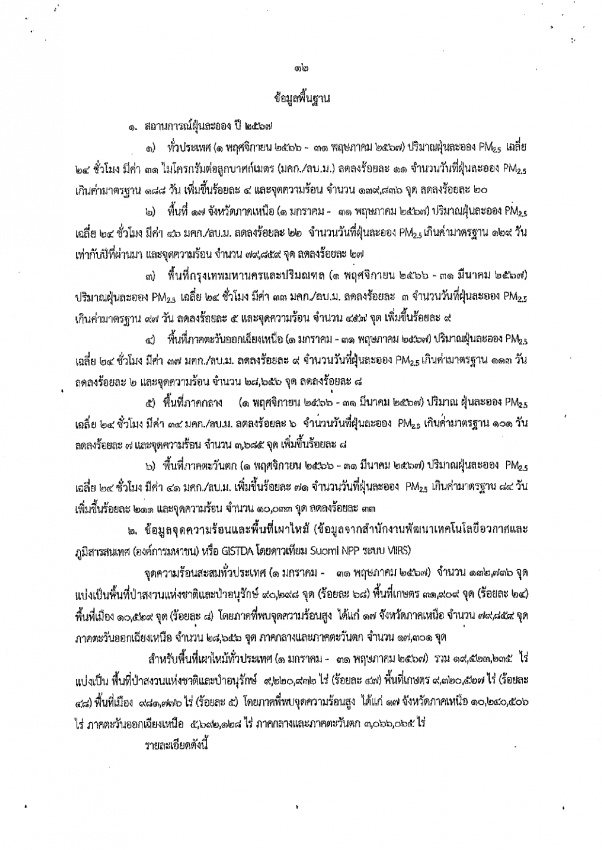 ๑๒
ข้อมูลพื้นฐาน
๑. สถานการณ์ฝุ่นละออง ปี ๒๕๖๗
๑) ทั่วประเทศ (๑ พฤศจิกายน ๒๕๖๖ - ๓๑ พฤษภาคม ๒๕๖๗) ปริมาณฝุ่นละออง PM2.5 เฉลี่ย
๒๔ ชั่วโมง มีค่า ๓๑ ไมโครกรัมต่อลูกบาศก์เมตร (มคก./ลบ.ม.) ลดลงร้อยละ ๑๑ จำนวนวันที่ฝุ่นละออง PM2.5
เกินค่ามาตรฐาน ๑๘๘ วัน เพิ่มขึ้นร้อยละ ๔ และจุดความร้อน จำนวน ๑๓๙,๘๓๖ จุด ลดลงร้อยละ ๒๐
๒) พื้นที่ ๑๗ จังหวัดภาคเหนือ (๑ มกราคม - ๓๑ พฤษภาคม ๒๕๖๗) ปริมาณฝุ่นละออง PM2.5
เฉลี่ย ๒๔ ชั่วโมง มีค่า ๔๖ มคก./ลบ.ม. ลดลงร้อยละ ๒๒ จำนวนวันที่ฝุ่นละออง PM2.5 เกินค่ามาตรฐาน ๑๒๙ วัน
เท่ากับปีที่ผ่านมา และจุดความร้อน จำนวน ๗๙,๘๕๙ จุด ลดลงร้อยละ ๒๗
๓) พื้นที่กรุงเทพมหานครและปริมณฑล (๑ พฤศจิกายน ๒๕๖๖ - ๓๑ มีนาคม ๒๕๖๗)
ปริมาณฝุ่นละออง PM2.5 เฉลี่ย ๒๔ ชั่วโมง มีค่า ๓๓ มคก./ลบ.ม. ลดลงร้อยละ ๓ จำนวนวันที่ฝุ่นละออง PM2.5
เกินค่ามาตรฐาน ๙๗ วัน ลดลงร้อยละ ๕ และจุดความร้อน จำนวน ๔๕๗ จุด เพิ่มขึ้นร้อยละ ๙
๔) พื้นที่ภาคตะวันออกเฉียงเหนือ (๑ มกราคม - ๓๑ พฤษภาคม ๒๕๖๗) ปริมาณฝุ่นละออง PM2.5
เฉลี่ย ๒๔ ชั่วโมง มีค่า ๓๗ มคก./ลบ.ม. ลดลงร้อยละ ๙ จำนวนวันที่ฝุ่นละออง PM2.5 เกินค่ามาตรฐาน ๑๑๓ วัน
ลดลงร้อยละ ๒ และจุดความร้อน จำนวน ๒๘,๖๕๖ จุด ลดลงร้อยละ ๘
๕) พื้นที่ภาคกลาง (๑ พฤศจิกายน ๒๕๖๖ - ๓๑ มีนาคม ๒๕๖๗) ปริมาณ ฝุ่นละออง PM2.5
เฉลี่ย ๒๔ ชั่วโมง มีค่า ๓๔ มคก./ลบ.ม. ลดลงร้อยละ ๖ จำนวนวันที่ฝุ่นละออง PM2.5 เกินค่ามาตรฐาน ๑๐๑ วัน
ลดลงร้อยละ ๗ และจุดความร้อน จำนวน ๓,๖๘๕ จุด เพิ่มขึ้นร้อยละ ๘
๖) พื้นที่ภาคตะวันตก (๑ พฤศจิกายน ๒๕๖๖ - ๓๑ มีนาคม ๒๕๖๗) ปริมาณฝุ่นละออง PM2.5
เฉลี่ย ๒๔ ชั่วโมง มีค่า ๔๑ มคก./ลบ.ม. เพิ่มขึ้นร้อยละ ๗๑ จำนวนวันที่ฝุ่นละออง PM2.5 เกินค่ามาตรฐาน ๘๔ วัน
เพิ่มขึ้นร้อยละ ๒๑๑ และจุดความร้อน จำนวน ๑๐,๐๓๓ จุด ลดลงร้อยละ ๓๓
๒. ข้อมูลจุดความร้อนและพื้นที่เผาไหม้ (ข้อมูลจากสำนักงานพัฒนาเทคโนโลยีอวกาศและ
ภูมิสารสนเทศ (องค์การมหาชน) หรือ GISTDA โดยดาวเทียม Suomi NPP ระบบ VIIRS)
จุดความร้อนสะสมทั่วประเทศ (๑ มกราคม - ๓๑ พฤษภาคม ๒๕๖๗) จำนวน ๑๓๒,๗๓๖ จุด
แบ่งเป็นพื้นที่ป่าสงวนแห่งชาติและป่าอนุรักษ์ ๙๐,๒๙๘ จุด (ร้อยละ ๖๘) พื้นที่เกษตร ๓๑,๙๐๙ จุด (ร้อยละ ๒๔)
พื้นที่เมือง ๑๐,๕๒๙ จุด (ร้อยละ ๘) โดยภาคที่พบจุดความร้อนสูง ได้แก่ ๑๗ จังหวัดภาคเหนือ จำนวน ๗๙,๘๕๙ จุด
ภาคตะวันออกเฉียงเหนือ จำนวน ๒๘,๖๕๖ จุด ภาคกลางและภาคตะวันตก จำนวน ๑๗,๓๐๑ จุด
สำหรับพื้นที่เผาไหม้ทั่วประเทศ (๑ มกราคม - ๓๑ พฤษภาคม ๒๕๖๗) รวม ๑๙,๕๒๓,๒๓๕ ไร่
แบ่งเป็น พื้นที่ป่าสงวนแห่งชาติและป่าอนุรักษ์ ๙,๒๒๐,๙๓๒ ไร่ (ร้อยละ ๔๗) พื้นที่เกษตร ๙,๓๒๐,๕๒๗ ไร่ (ร้อยละ
๔๘) พื้นที่เมือง ๙๘๑,๗๗๖ ไร่ (ร้อยละ ๕) โดยภาคที่พบจุดความร้อนสูง ได้แก่ ๑๗ จังหวัดภาคเหนือ ๑๐,๒๔๐,๕๐๖
ไร่ ภาคตะวันออกเฉียงเหนือ ๕,๖๙๒,๑๒๘ ไร่ ภาคกลางและภาคตะวันตก ๓,๐๖๖,๐๖๕ ไร่
รายละเอียดดังนี้